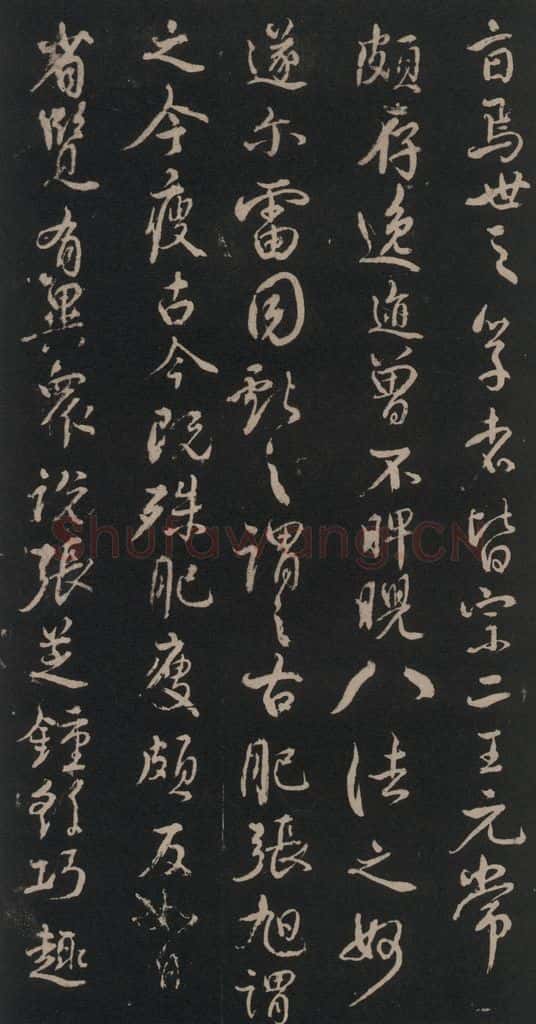 焉世之學者皆宗二王元常
頗存逸迹曾不睥睨八法之妙
遂尔雷同獻之謂之古肥張旭謂
之今瘦古今既殊肥瘦頗反如自
省覽有異衆說張芝鍾繇巧趣
Shufawang.CN